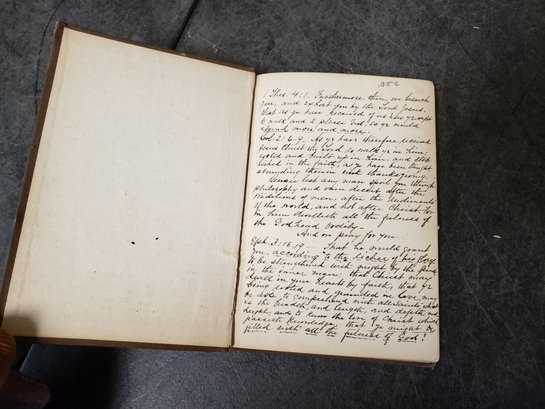 1 Thes. 4:1. Furthermore then, we beseech
you, and exhort you by the Lord Jesus,
that as ye have received of us how ye ought
to walk and to please God, so ye would
abound more and more.
Col. 2:6-9. As ye have therefore received
Jesus Christ the Lord, so walk ye in him,
rooted and built up in him and stab-
lished in the faith, as ye have been taught
abounding therein with thanksgiving.
Beware lest any man spoil you through
philosophy and vain deceit, after the
traditions of men, after the rudiments
of the world, and not after Christ. For
in him dwelleth all the fulness of
the Godhead bodily.
And we pray for you
Eph. 3:16,19 - That he would grant
you according to the riches of his glory
to be strengthened with might by the
in the inner man: that Christ may
dwell in your hearts by faith, that ye
being rooted and grounded in love may
be able to comprehend with all saints what
is the breadth, and length, and depth and
height, and to know the love of Christ which
passeth knowledge, that ye might be
filled with all the fulness of God!